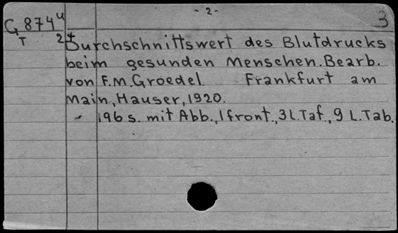 - 2 -
3
G 874 u
T 2+
Durchschnittswert des Blutdrucks
beim gesunden Menschen. Bearb.
von F.M. Groedel Frankfurt am
Main, Hauser, 1920.
196 s. mit Abb., 1 front., 3 l. Taf., 9 L. Tab.